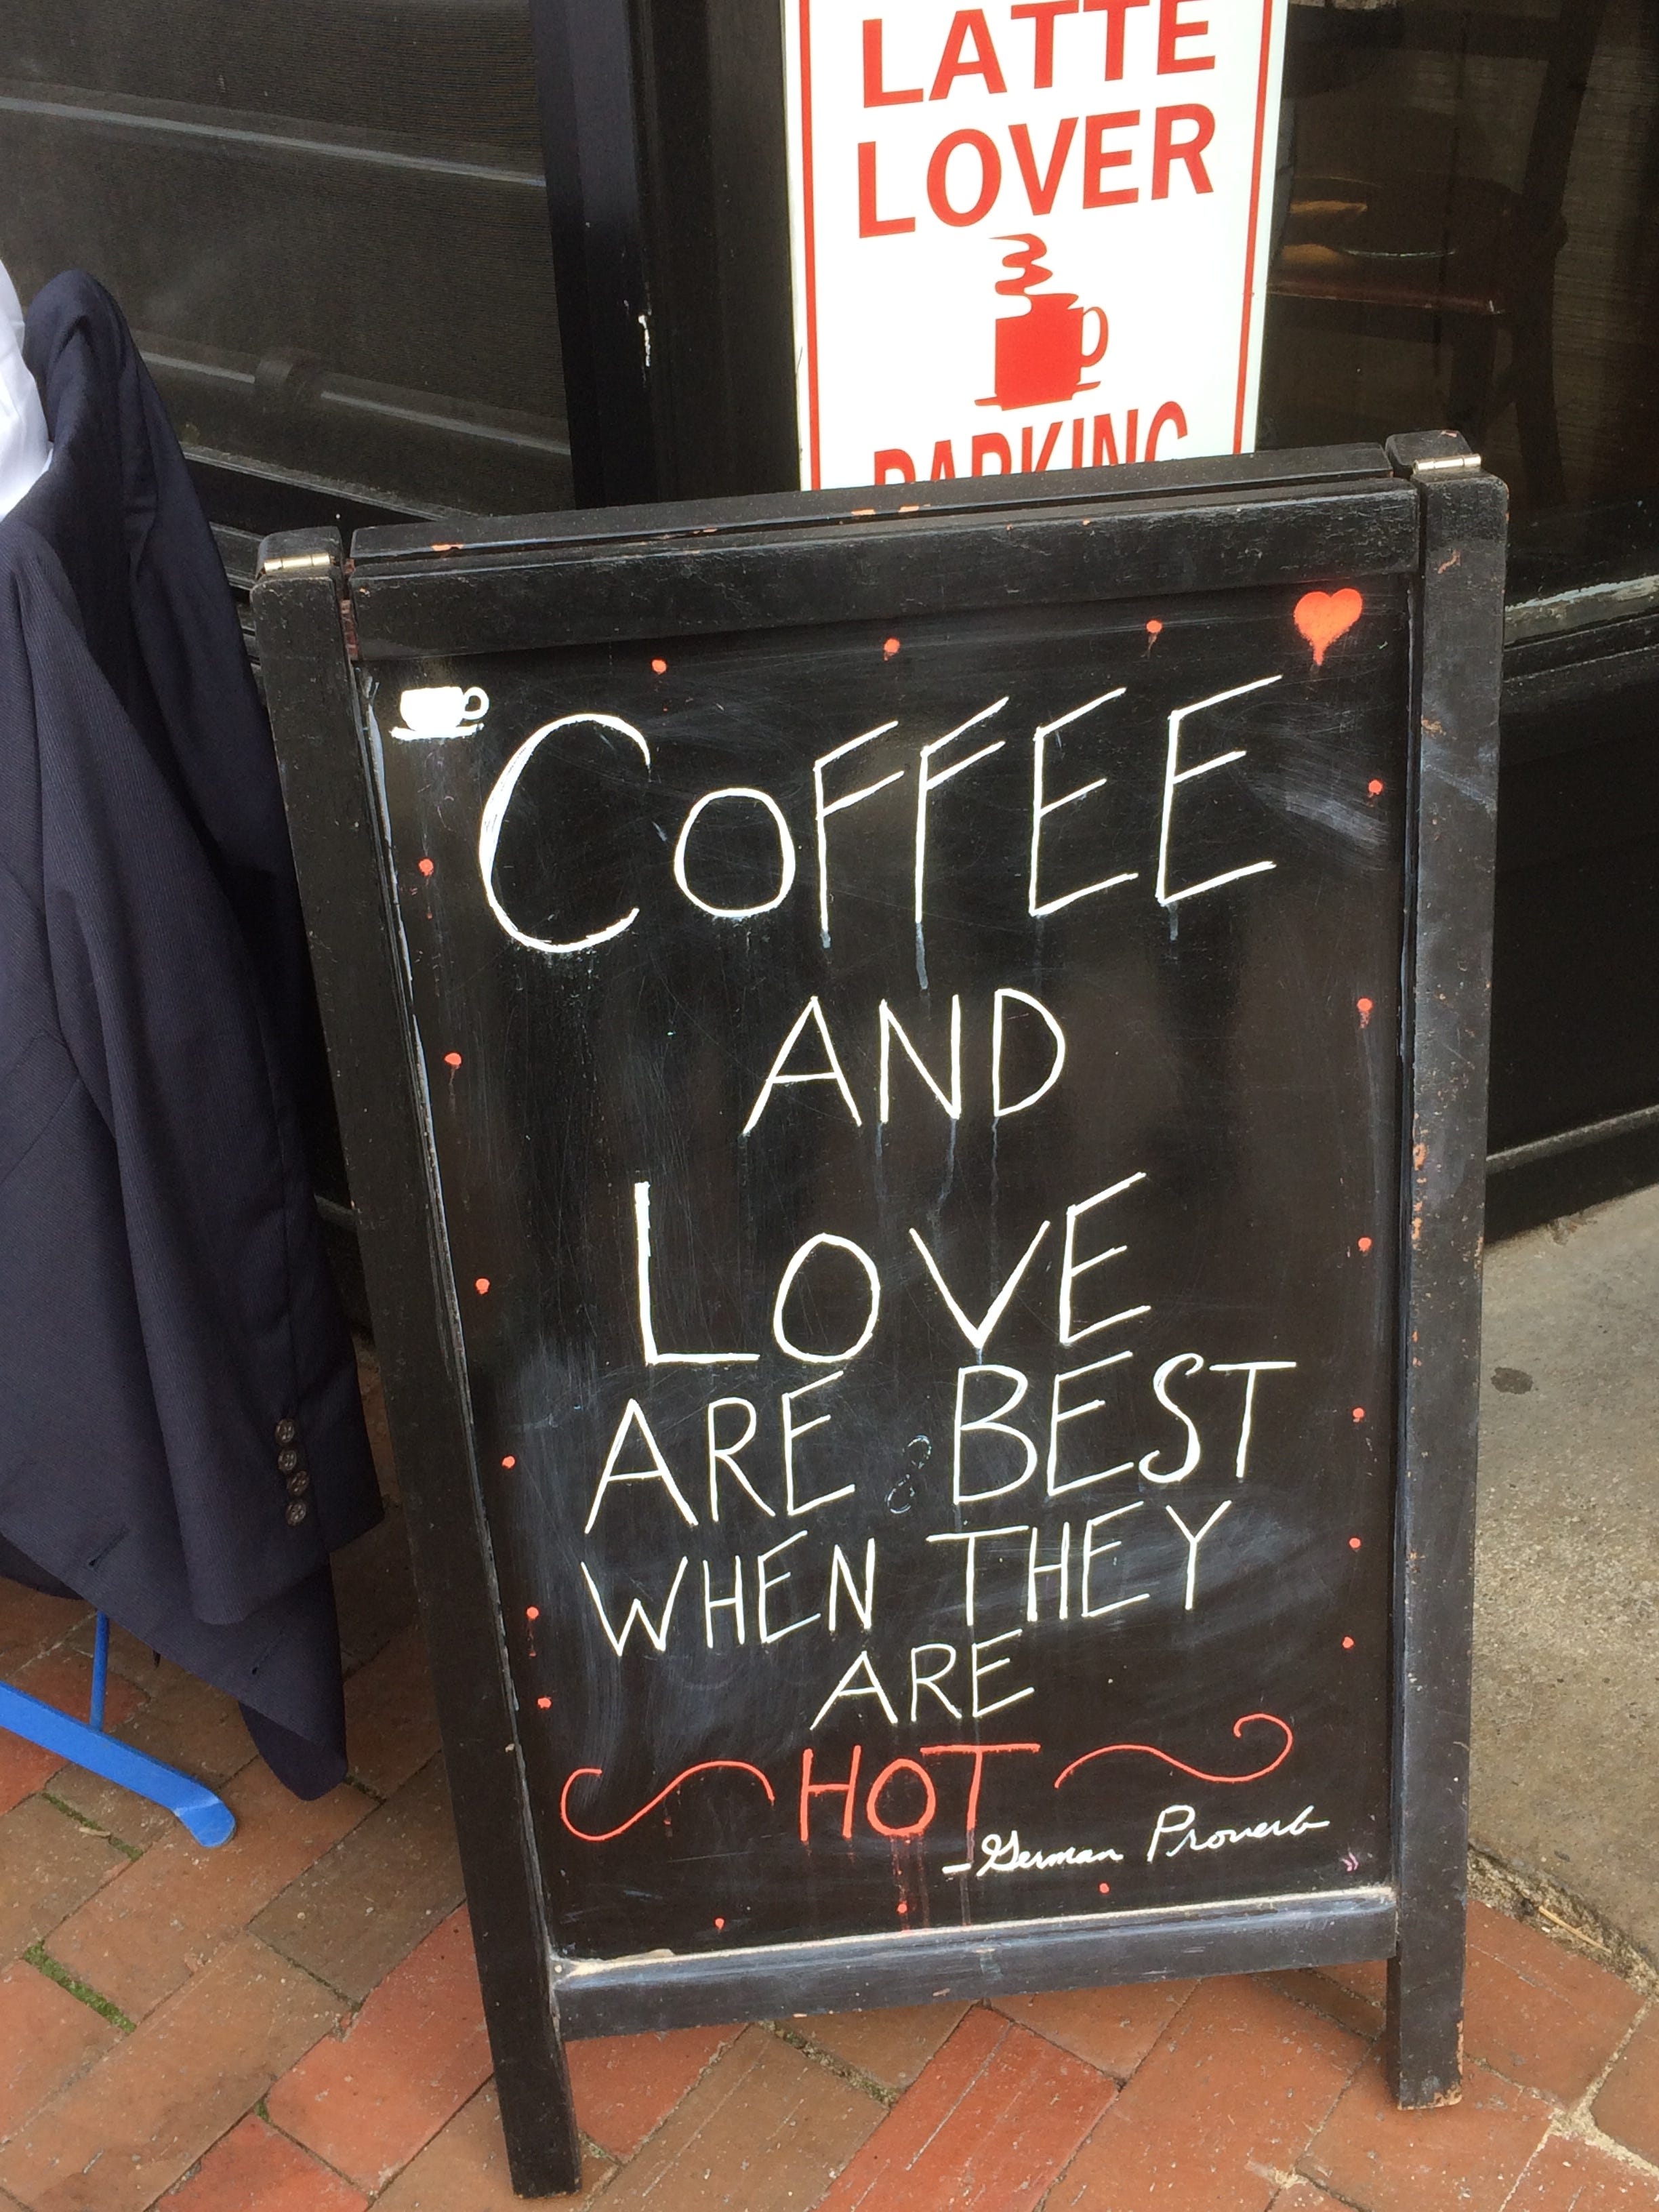 LATTE
LOVER
PARKING
COFFEE
AND
LOVE
ARE BEST
WHEN THEY
ARE
HOT
-German Proverb